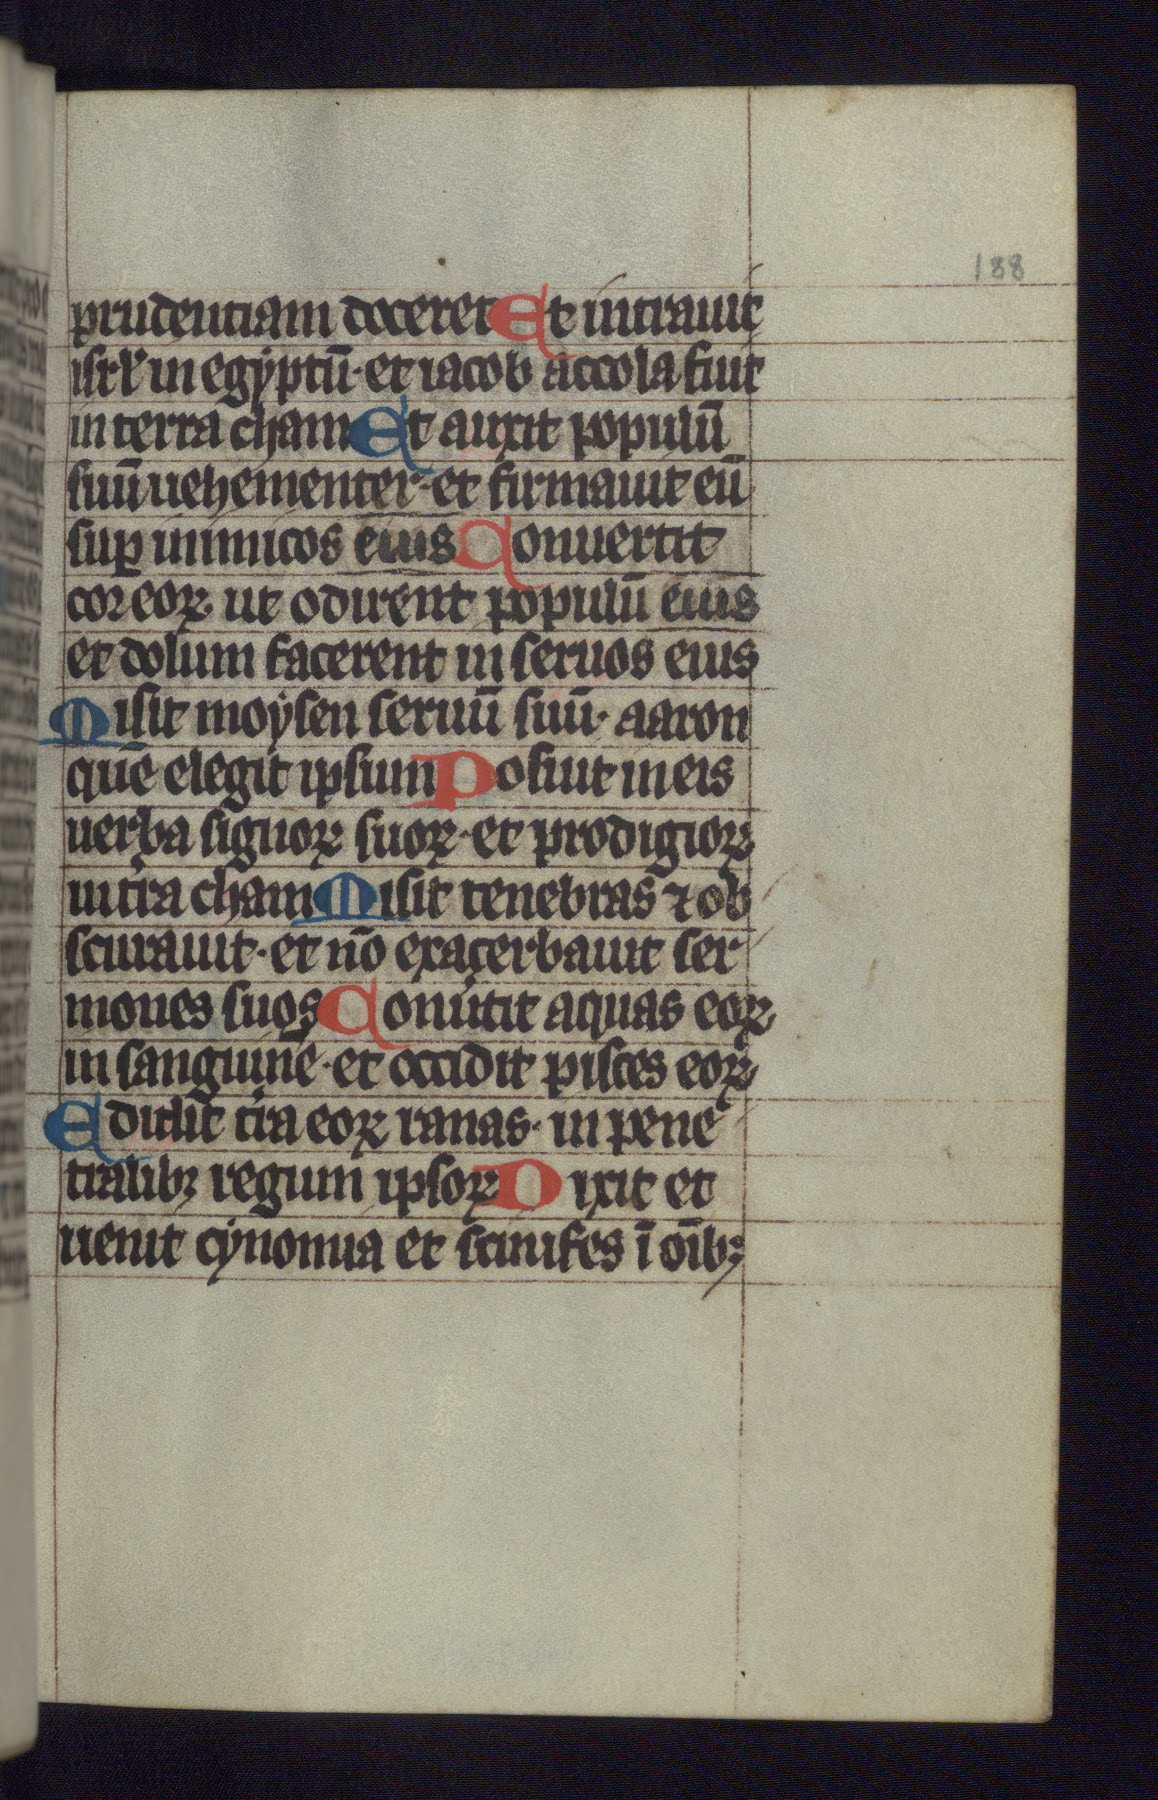 188
prudentiam doceret Et intrauit
isrl' in egẏptū· et iacob accola fuit
in terra cham Et auxit populū
suū uehementer· et firmauit eū
suꝑ inimicos eius Conuertit
cor eoꝝ ut odirent populū eius
et dolum facerent in seruos eius
Misit moẏsen seruū suū· aaron
quē elegit ipsum Posuit in eis
uerba signoꝝ suoꝝ· et prodigioꝝ
in tr̃a cham Misit tenebras ⁊ ob
scurauit· et nō exacerbauit ser
mones suos Conũtit aquas eoꝝ
in sanguinē· et occidit pisces eoꝝ
Edidit tr̃a eoꝝ ranas· in pene
tralibꝫ regum ipsoꝝ Dixit et
uenit cẏnomia et scinifes ī oīibꝫ